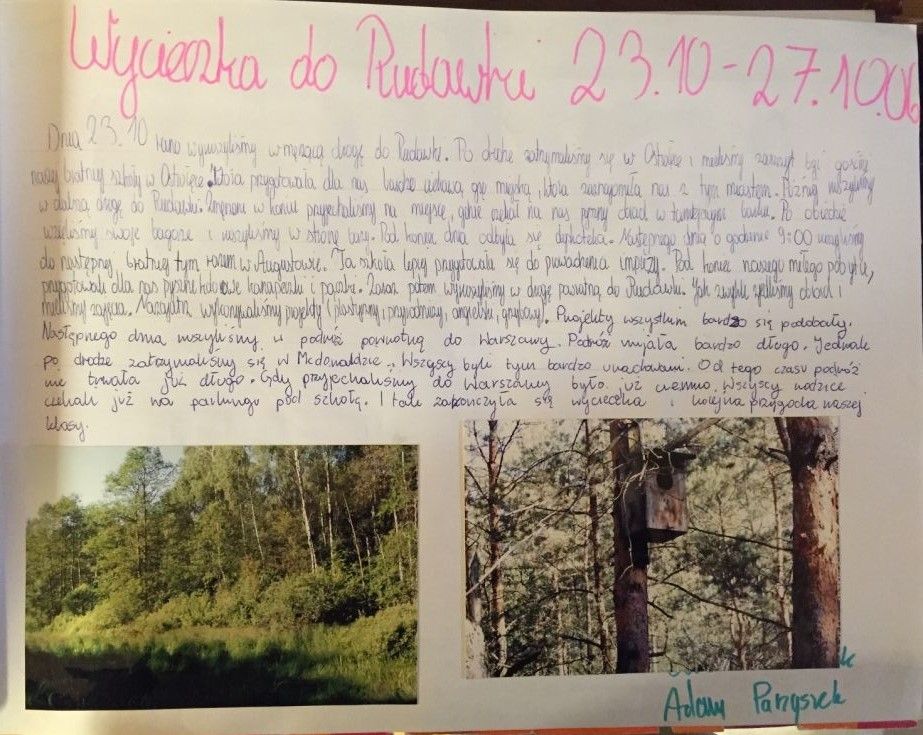 Wycieczka do Rudawki 23.10-27.10.06
Dnia 23.10 rano wyruszyliśmy w męczącą drogę do Rudawki. Po drodze zatrzymaliśmy się w i mieliśmy zaszczyt być gośćmi
naszej bratniej szkoły w która przygotowała dla nas bardzo ciekawą grę miejską, która zaznajomiła nas z tym miastem. Później ruszyliśmy
w dalszą drogę do Rudawki. Zmęczeni w końcu przyjechaliśmy na miejsce, gdzie czekał na nas pyszny obiad w Po obiedzie
wzięliśmy swoje bagaże i ruszyliśmy w stronę bazy. Pod koniec dnia odbyła się dyskoteka. Następnego dnia o godzinie 9:00 ruszyliśmy
do następnej bratniej tym razem w Augustowie. Ta szkoła lepiej przygotowała się do prowadzenia imprezy. Pod koniec naszego miłego pobytu,
przygotowali dla nas pyszne kanapeczki i Zaraz potem wyruszyliśmy w drogę powrotną do Rudawki. Jak zwykle zjedliśmy obiad i
mieliśmy zajęcia. Nazajutrz wykonywaliśmy projekty (plastyczny, przyrodniczy, angielski, grzybowy). Projekty wszystkim bardzo się podobały.
Następnego dnia wszyliśmy w podróż powrotną do Warszawy. Podróż mijała bardzo długo. Jednak
po drodze zatrzymaliśmy się w Mcdonaldzie. Wszyscy byli tym bardzo uradowani. Od tego czasu podróż
nie trwała już długo. Gdy przyjechaliśmy do Warszawy było już ciemno. Wszyscy rodzice
czekali już na parkingu pod szkołą. I tak zakończyła się wycieczka i kolejna przygoda naszej
klasy.
Adam Parzyszek